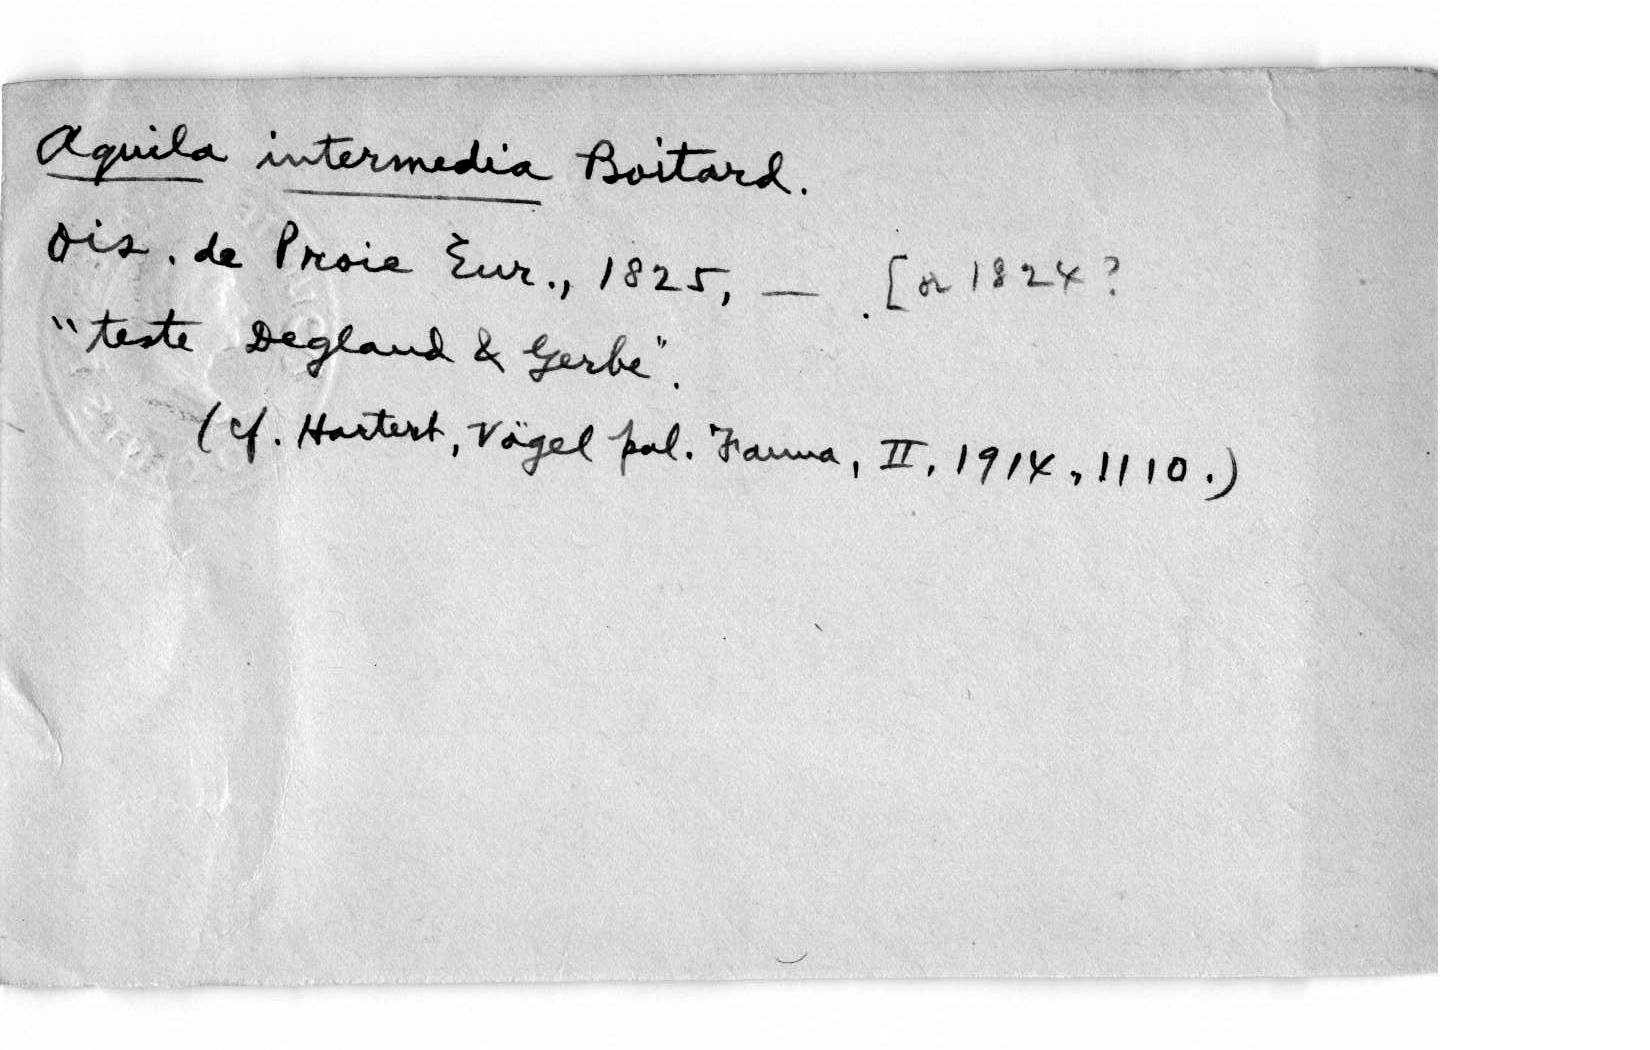 Aquila intermedia Boitard.
Ois. de Proie Eur., 1825, — . [or 1824?
"teste Degland & Gerbe".
(cf. Hartert, Vögel pal. Fauna, II, 1914, 1110.)